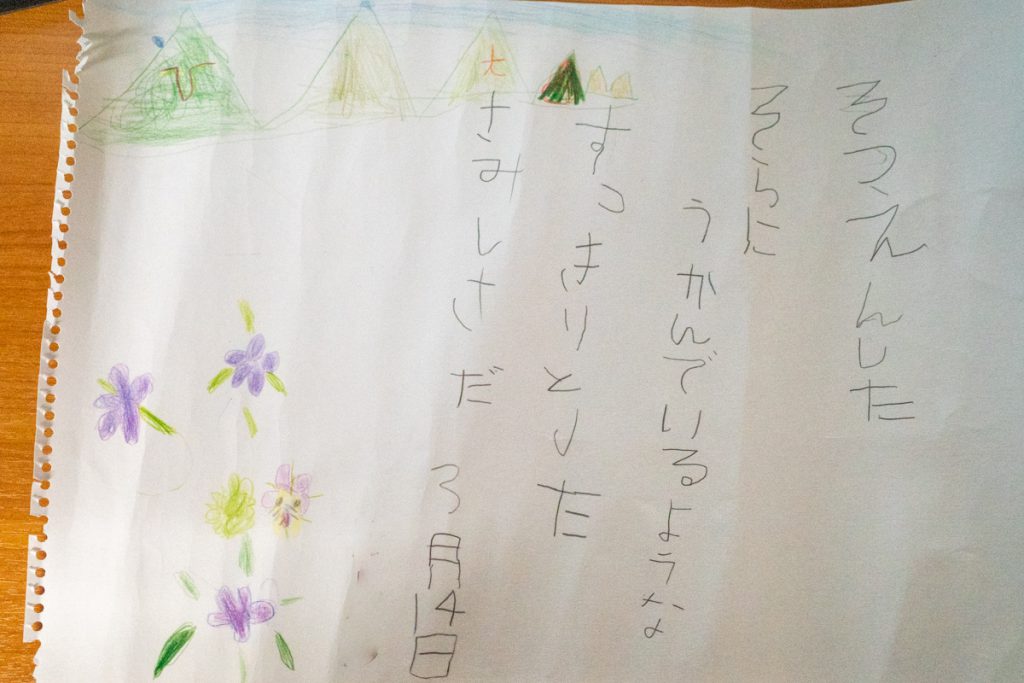 そつえんした
そらに
うかんでいるような
すっきりとした
さみしさだ
3月14日